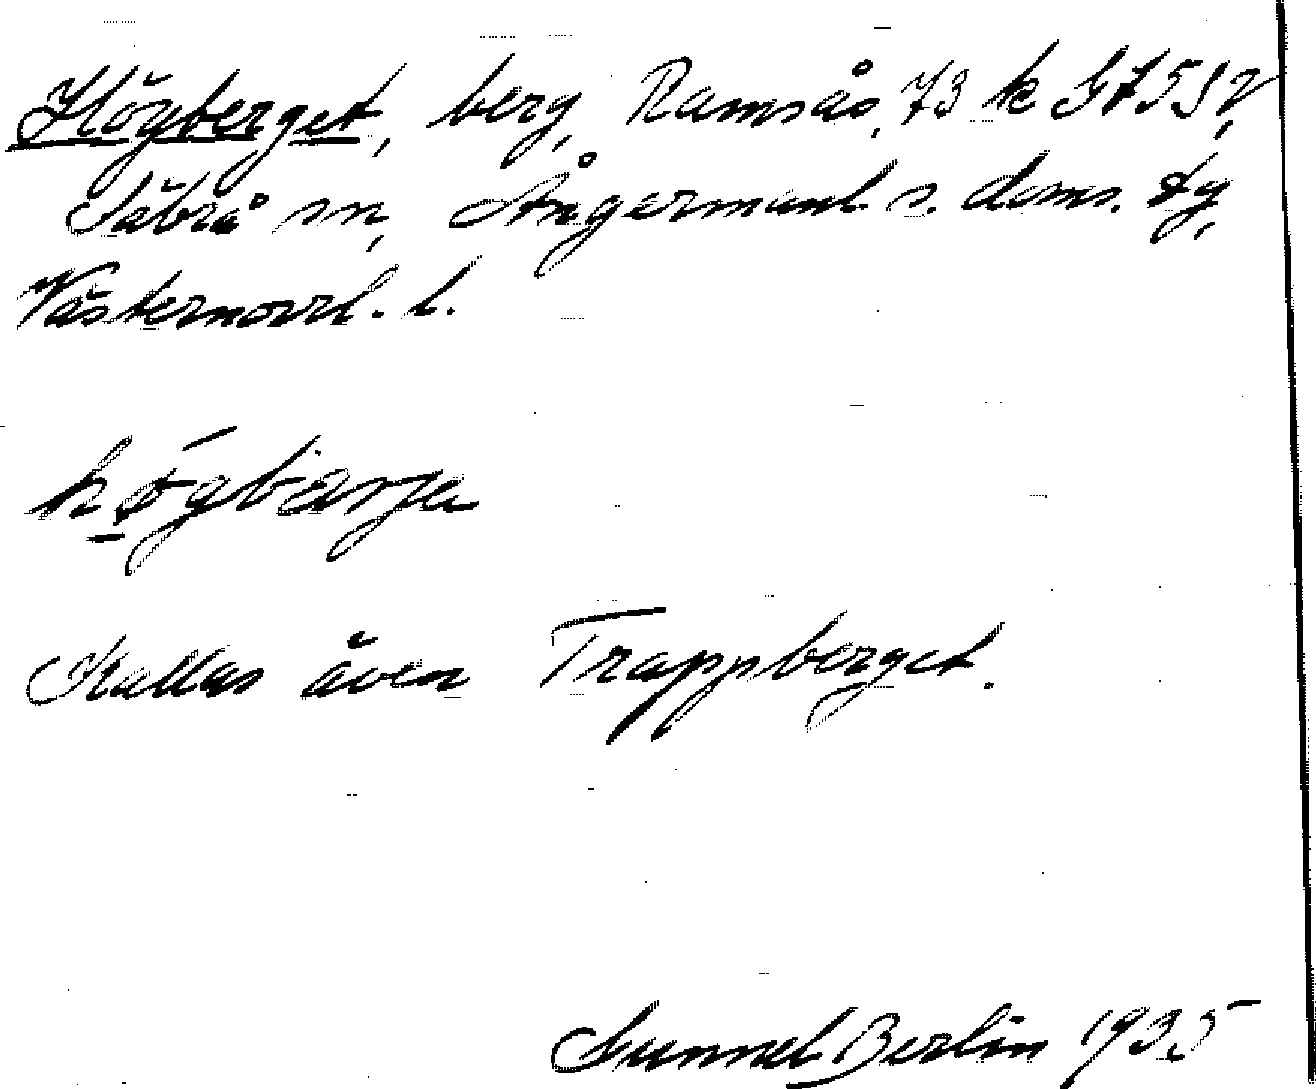 Högberget, berg, Ramsås, 73 k G 7552,
Säbrå sn, Ångermanl. s. doms. tg,
Västernorrl. l.
högbærje
Kallas även Trappberget.
Gunnel Berlin 1935